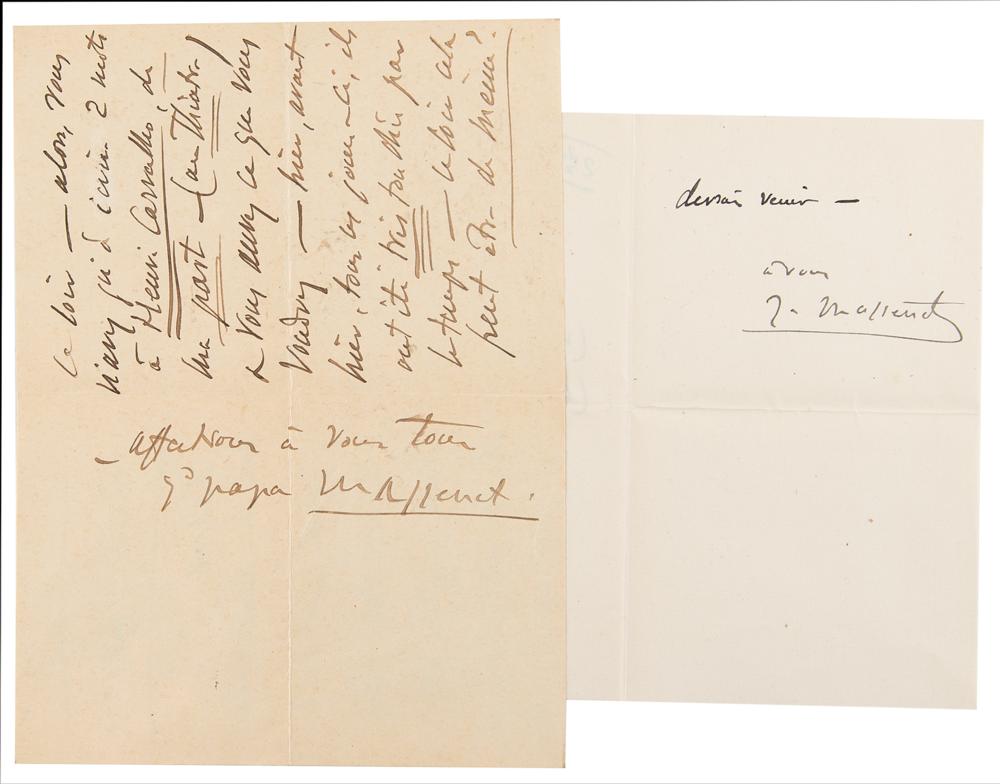 ce soir — alors, vous
n'avez qu'à écrire 2 mots
à Henri Carvalho de
ma part (au Théâtre)
& vous aurez ce que vous
voudrez — hier, avant
hier, tous ces jours-ci, ils
ont été très touchés par
le temps — ce soir cela
peut être de même?
— affections à vous tous
Gd papa Massenet.
devrait venir —
à vous
J. Massenet